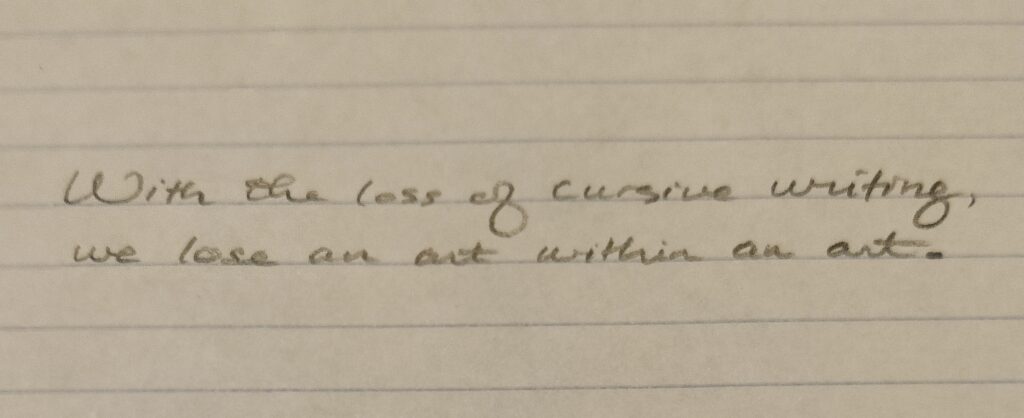 With the loss of cursive writing,
we lose an art within an art.